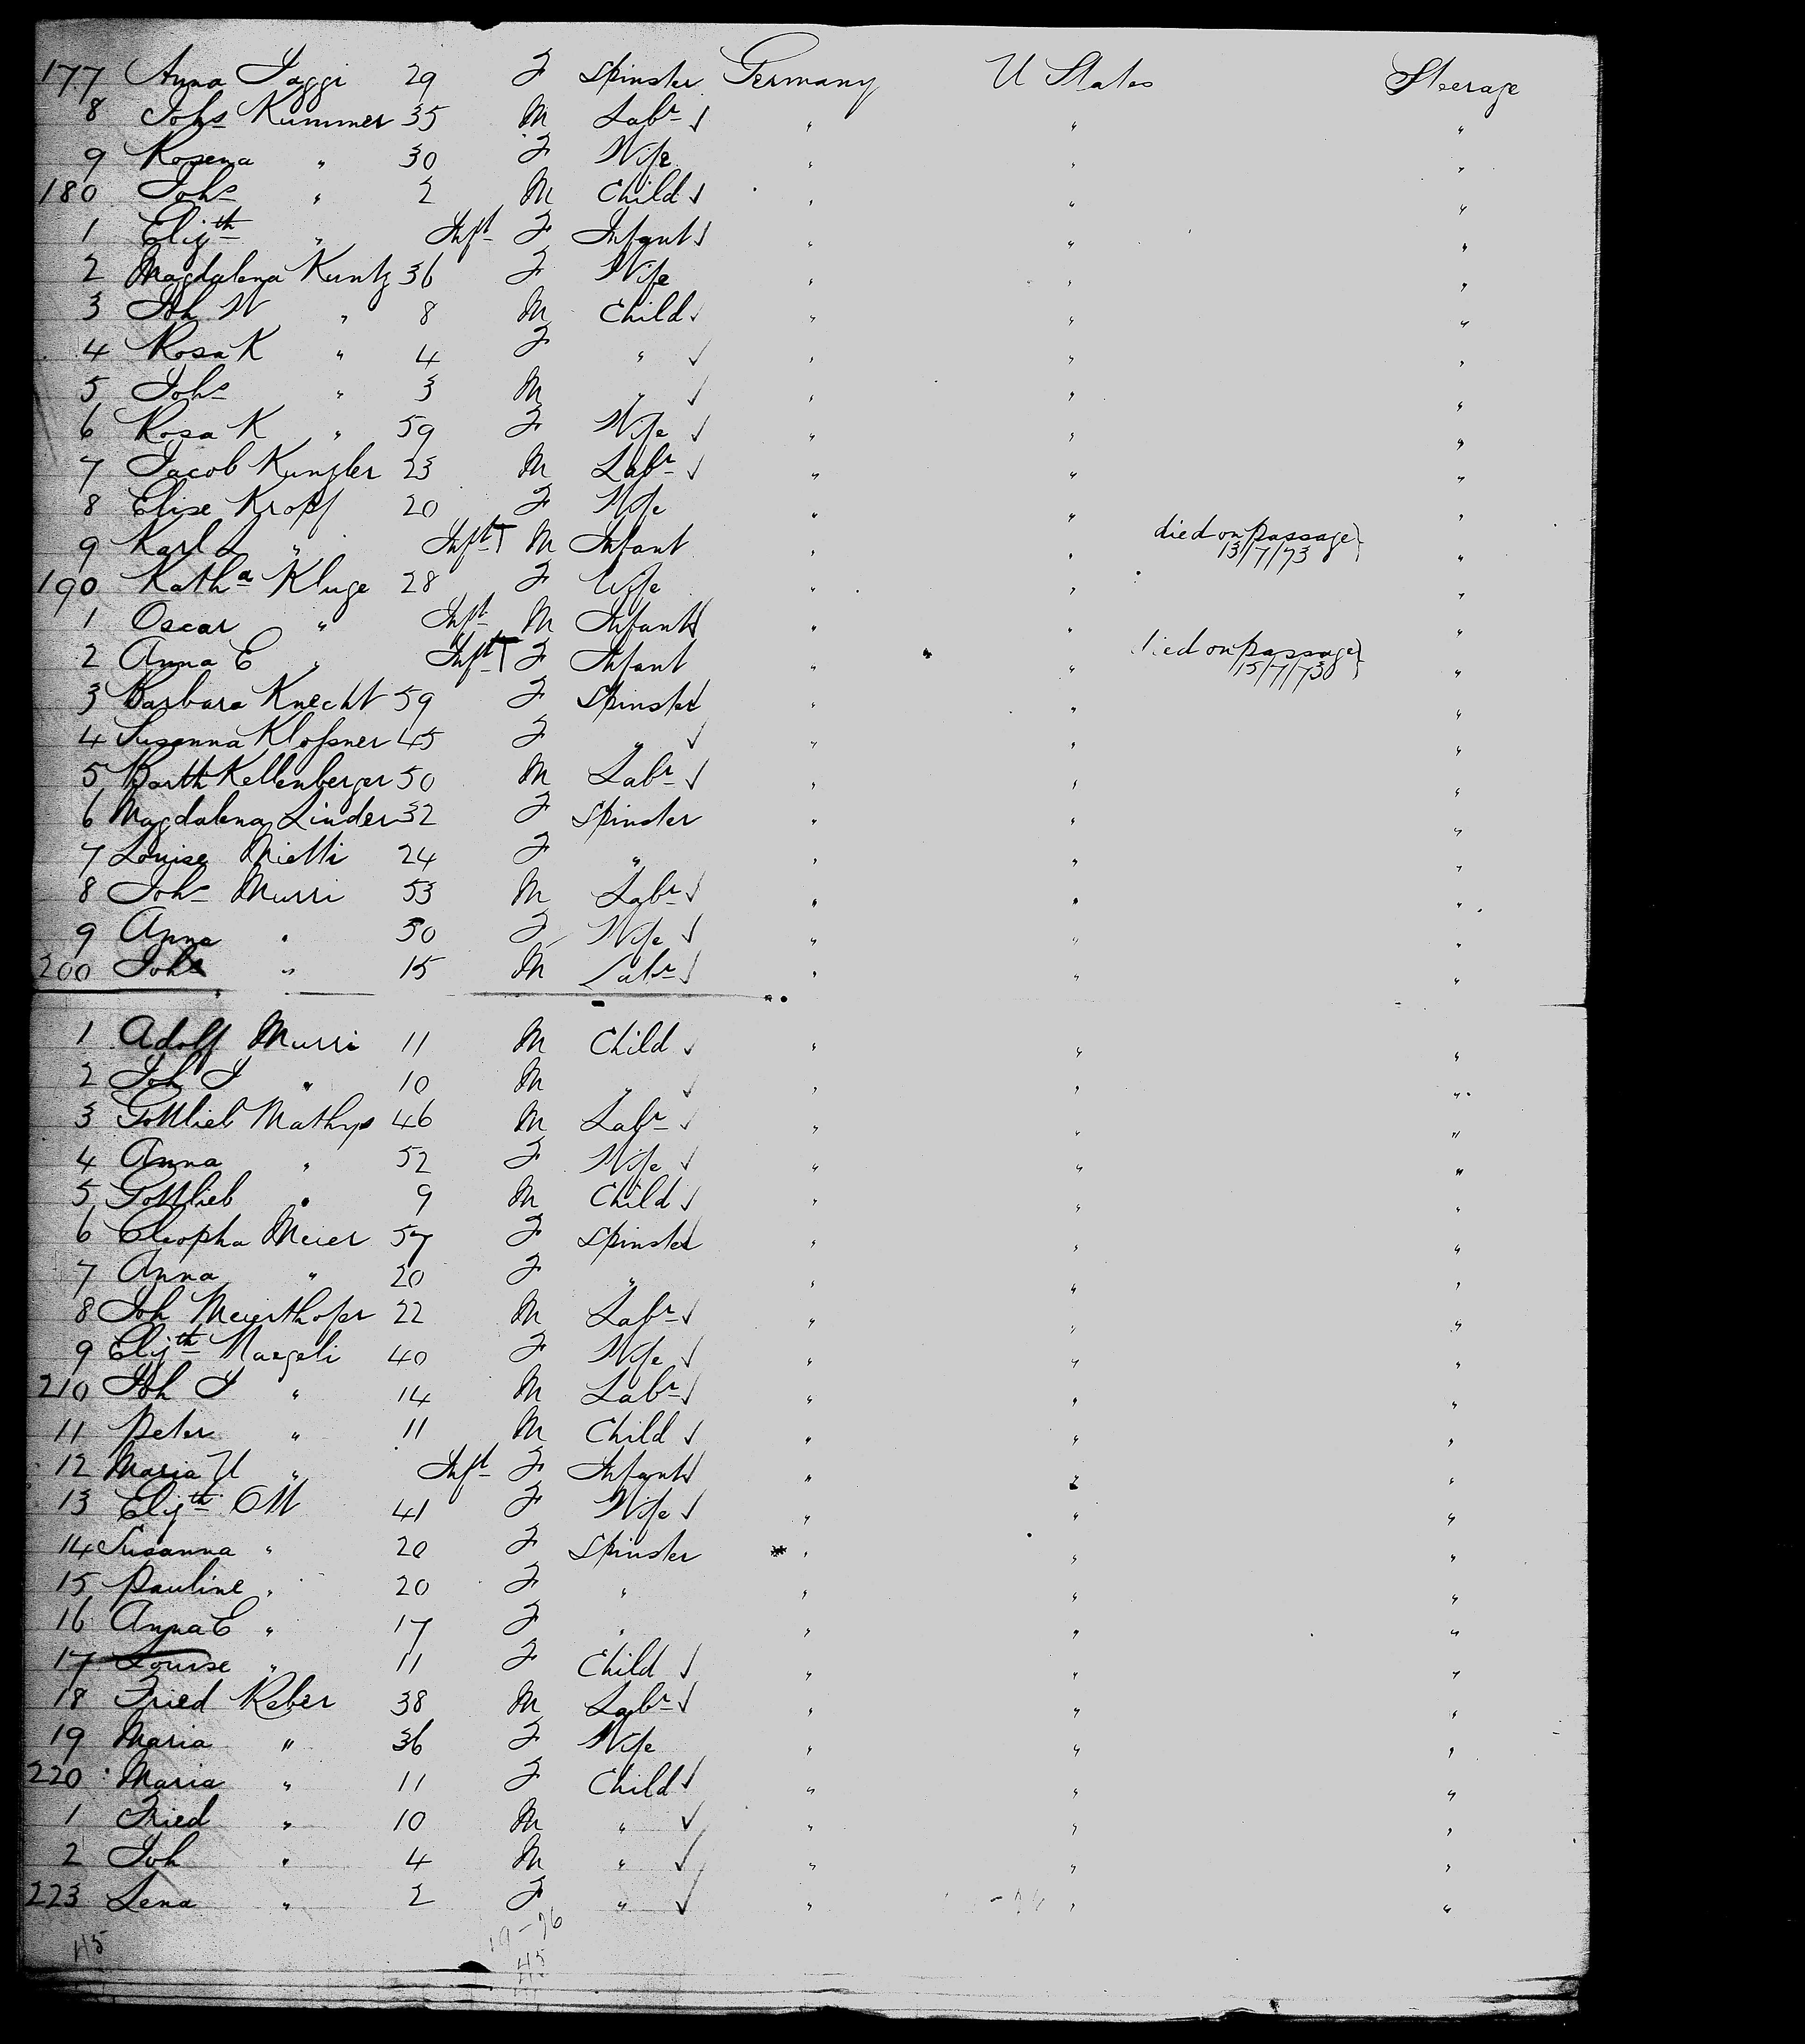 177 Anna Jaggi 29 F Spinster Germany U States Steerage
8 Johs Kummer 35 M Labr ✓ " " "
9 Rosena " 30 F Wife " " "
180 Johs " 2 M Child ✓ " " "
1 Elizth " Inft F Infant ✓ " " "
2 Magdalena Kuntz 36 F Wife " " "
3 Joh W " 8 M Child ✓ " " "
4 Rosa K " 4 F " ✓ " " "
5 Johs " 3 M " ✓ " " "
6 Rosa K " 59 F Wife ✓ " " "
7 Jacob Kunzler 23 M Labr ✓ " " "
8 Elise Kropf 20 F Wife " " "
9 Karl L " Inft T M Infant " " died on passage 13/7/73 "
190 Katha Kluge 28 F Wife " " "
1 Oscar " Inft M Infant ✓ " " "
2 Anna E " Inft T F Infant " " died on passage 15/7/73 "
3 Barbara Knecht 59 F Spinster ✓ " " "
4 Susanna Klofsner 45 F " ✓ " " "
5 Barth Kellenberger 50 M Labr ✓ " " "
6 Magdalena Linder 32 F Spinster " " "
7 Louise Mietti 24 F " " " "
8 Johs Murri 53 M Labr ✓ " " "
9 Anna " 50 F Wife ✓ " " "
200 Johs " 15 M Labr ✓ " " "
1 Adolf Murri 11 M Child ✓ " " "
2 Joh J " 10 M " ✓ " " "
3 Gottlieb Mathys 46 M Labr ✓ " " "
4 Anna " 52 F Wife ✓ " " "
5 Gottlieb " 9 M Child ✓ " " "
6 Cleopha Meier 57 F Spinster ✓ " " "
7 Anna " 20 F " " " "
8 Joh Meierthofer 22 M Labr ✓ " " "
9 Elizth Naegeli 40 F Wife ✓ " " "
210 Joh J " 14 M Labr ✓ " " "
11 Peter " 11 M Child ✓ " " "
12 Maria U " Inft F Infant ✓ " " "
13 Elizth Ott 41 F Wife ✓ " " "
14 Susanna " 20 F Spinster " " "
15 Pauline " 20 F " " " "
16 Anna E " 17 F " " " "
17 Louise " 11 F Child ✓ " " "
18 Fried Reber 38 M Labr ✓ " " "
19 Maria " 36 F Wife " " "
220 Maria " 11 F Child ✓ " " "
1 Fried " 10 M " ✓ " " "
2 Joh " 4 M " ✓ " " "
223 Lena " 2 F " ✓ " " "
45
45